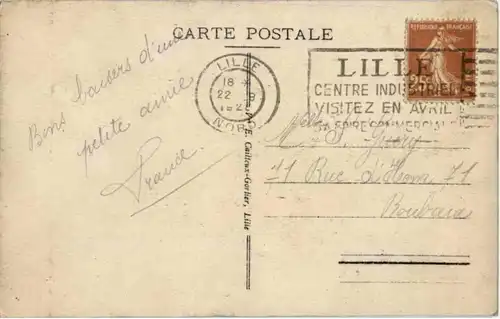 CARTE POSTALE
Bons baisers d'une
petite amie
France
LILLE
18 *
22
NORD
LILLE
CENTRE INDUSTRIEL
VISITEZ EN AVRIL
SA FOIRE COMMERCIALE
REPUBLIQUE FRANÇAISE
25
E. Cailteux-Gortier, Lille
Melle S.
71 Rue d' 71
Roubaix